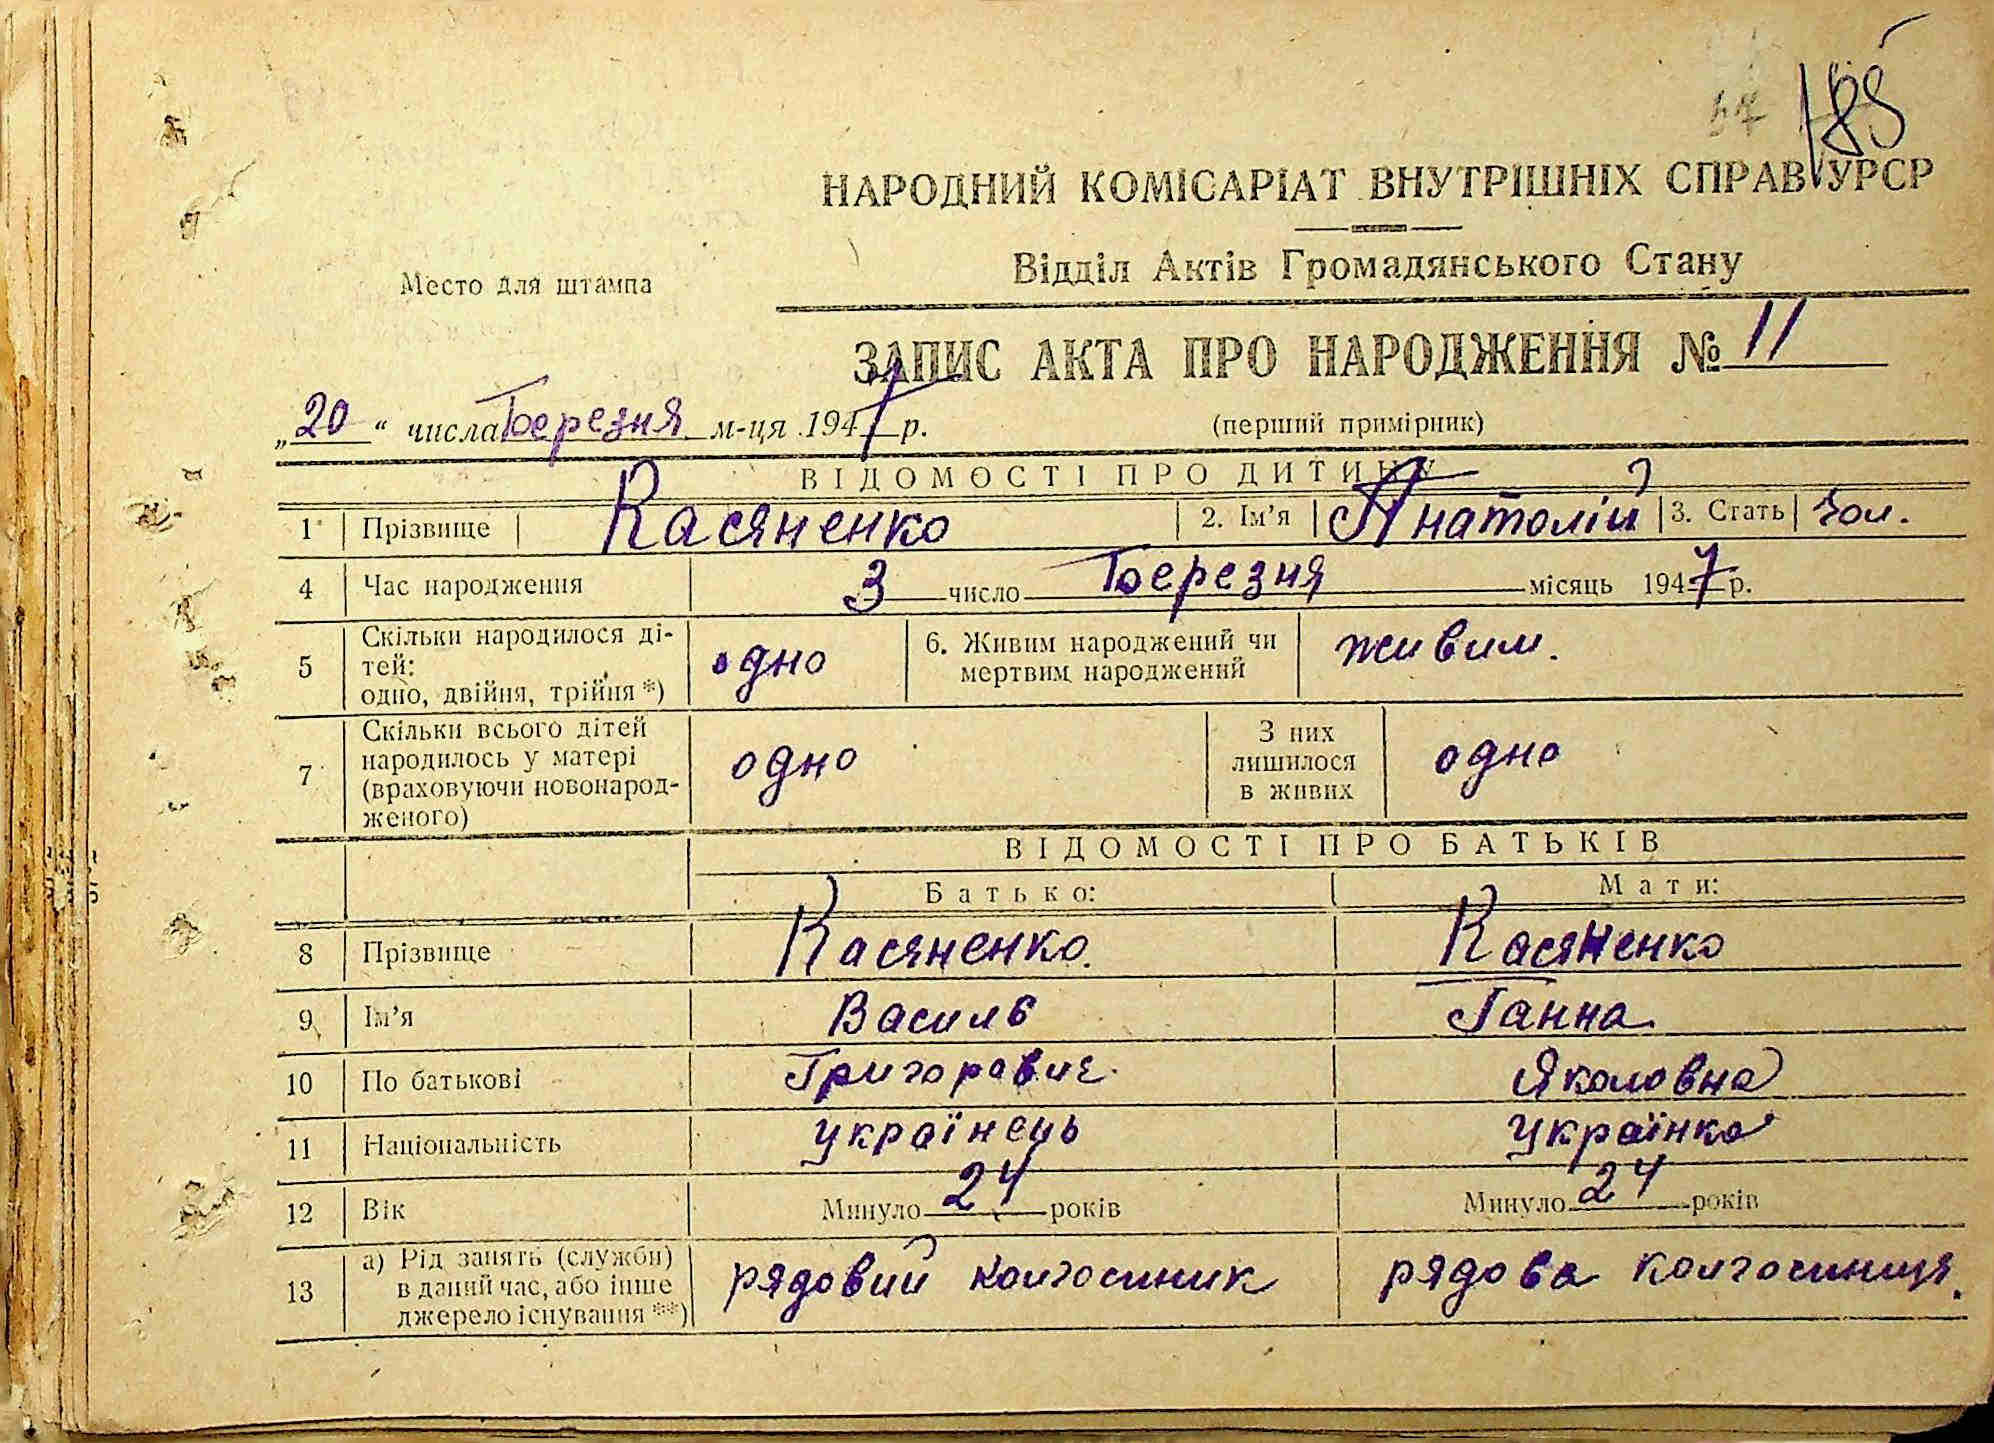 185
НАРОДНИЙ КОМІСАРІАТ ВНУТРІШНІХ СПРАВ УРСР
Відділ Актів Громадянського Стану
Место для штампа
ЗАПИС АКТА ПРО НАРОДЖЕННЯ № 11
„20“ числа Березня м-ця 1947 р. (перший примірник)
ВІДОМОСТІ ПРО ДИТИНУ
1 Прізвище Касяненко 2. Ім’я Анатолій 3. Стать чол.
4 Час народження 3 число Березня місяць 1947 р.
5 Скільки народилося ді-
тей:
одно, двійня, трійня *) одно 6. Живим народжений чи
мертвим народжений живим.
7 Скільки всього дітей
народилось у матері
(враховуючи новонарод-
женого) одно З них
лишилося
в живих одно
ВІДОМОСТІ ПРО БАТЬКІВ
Батько: Мати:
8 Прізвище Касяненко. Касяненко
9 Ім’я Василь Ганна.
10 По батькові Григоравич. Яколовна
11 Національність українець Українка
12 Вік Минуло 24 років Минуло 24 років
13 а) Рід занять (служби)
в даний час, або інше
джерело існування **) рядовий колгоспник рядова колгоспниця.